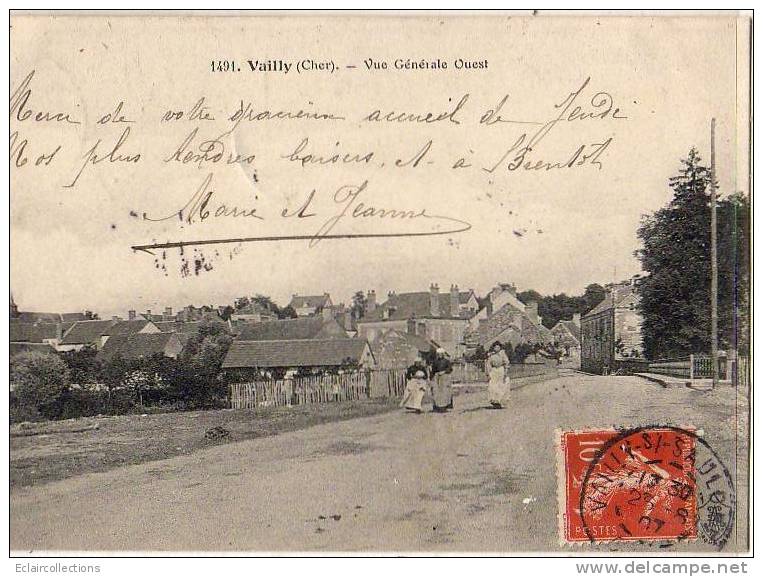 1491. Vailly (Cher). - Vue Générale Ouest
Merci de votre gracieux accueil de Jeudi
Nos plus tendres baisers et à Bientôt
Marie et Jeanne
10
POSTES
VAILLY-S/-SAULDRE
13 30
07
Eclaircollections
www.delcampe.net